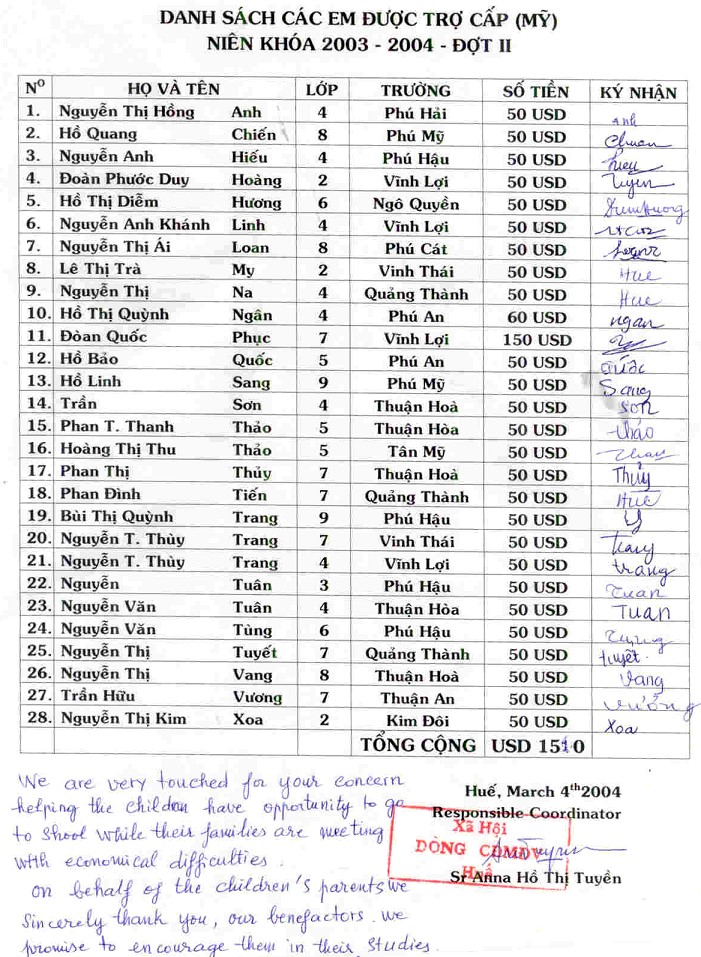 DANH SÁCH CÁC EM ĐƯỢC TRỢ CẤP (MỸ)
NIÊN KHÓA 2003 - 2004 - ĐỢT II
Nº HỌ VÀ TÊN LỚP TRƯỜNG SỐ TIỀN KÝ NHẬN
1. Nguyễn Thị Hồng Anh 4 Phú Hải 50 USD Anh
2. Hồ Quang Chiến 8 Phú Mỹ 50 USD
3. Nguyễn Anh Hiếu 4 Phú Hậu 50 USD hieu
4. Đoàn Phước Duy Hoàng 2 Vĩnh Lợi 50 USD
5. Hồ Thị Diễm Hương 6 Ngô Quyền 50 USD
6. Nguyễn Anh Khánh Linh 4 Vĩnh Lợi 50 USD
7. Nguyễn Thị Ái Loan 8 Phú Cát 50 USD
8. Lê Thị Trà My 2 Vinh Thái 50 USD Huê
9. Nguyễn Thị Na 4 Quảng Thành 50 USD Huê
10. Hồ Thị Quỳnh Ngân 4 Phú An 60 USD ngan
11. Đòan Quốc Phục 7 Vĩnh Lợi 150 USD
12. Hồ Bảo Quốc 5 Phú An 50 USD quốc
13. Hồ Linh Sang 9 Phú Mỹ 50 USD Sang
14. Trần Sơn 4 Thuận Hoà 50 USD sơn
15. Phan T. Thanh Thảo 5 Thuận Hòa 50 USD thảo
16. Hoàng Thị Thu Thảo 5 Tân Mỹ 50 USD
17. Phan Thị Thủy 7 Thuận Hoà 50 USD Thủy
18. Phan Đình Tiến 7 Quảng Thành 50 USD Huê
19. Bùi Thị Quỳnh Trang 9 Phú Hậu 50 USD
20. Nguyễn T. Thùy Trang 7 Vinh Thái 50 USD
21. Nguyễn T. Thùy Trang 4 Vĩnh Lợi 50 USD trang
22. Nguyễn Tuân 3 Phú Hậu 50 USD Tuan
23. Nguyễn Văn Tuân 4 Thuận Hòa 50 USD Tuan
24. Nguyễn Văn Tùng 6 Phú Hậu 50 USD
25. Nguyễn Thị Tuyết 7 Quảng Thành 50 USD tuyết.
26. Nguyễn Thị Vang 8 Thuận Hoà 50 USD Vang
27. Trần Hữu Vương 7 Thuận An 50 USD vương
28. Nguyễn Thị Kim Xoa 2 Kim Đôi 50 USD Xoa
TỔNG CỘNG USD 1510
We are very touched for your concern
helping the children have opportunity to go
to shool while their families are meeting
with economical difficulties.
on behalf of the children's parents we
sincerely thank you, our benefactors. we
promise to encourage them in their studies.
Huế, March 4th2004
Responsible Coordinator
Xã Hội
DÒNG CĐMĐV
Huế
Sr Anna Hồ Thị Tuyền